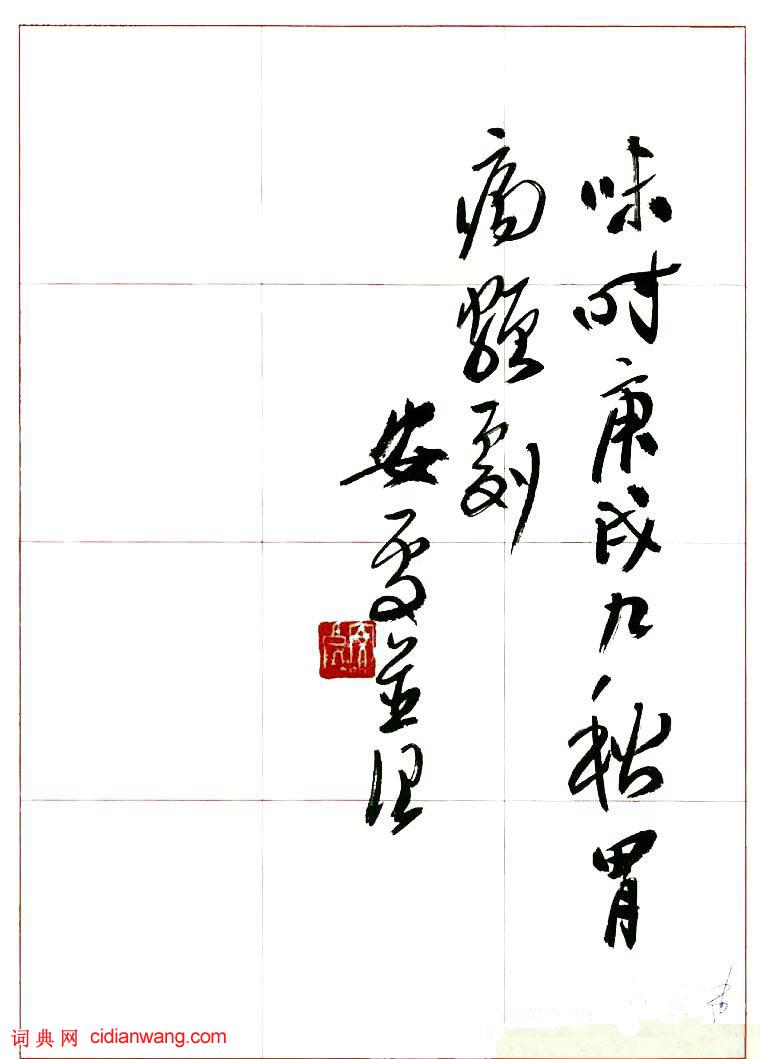 味时庚戌九秋胃
病剧
安雪并
词典网 cidianwang.com